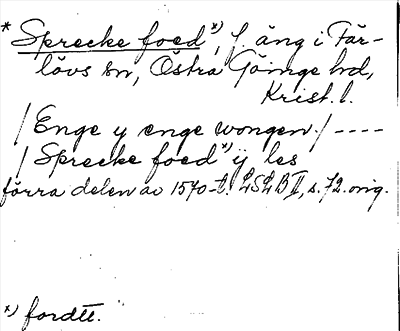 * Sprecke foed*), f. äng i Fär-
lövs sn, Östra Göinge hd,
Krist. l.
/ Enge y enge wongen / ----
/ Sprecke foed*) ÿ les
förra delen av 1570-t. LSLB II, s. 72. orig.
*) fordtt.